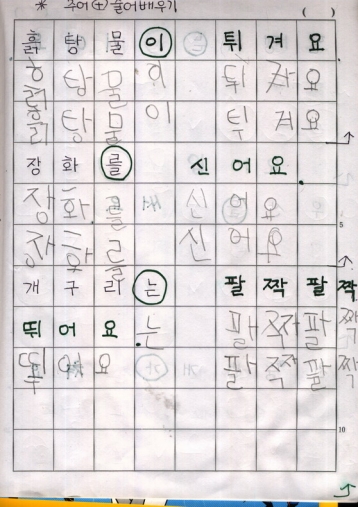 * 주어(+)술어배우기 ( )
흙 탕 물 이 튀 겨 요
흙 탕 물 이 튀 겨 요
흙 탕 물 이 튀 겨 요
장 화 를 신 어 요
장 화 를 신 어 요 5
장 화 를 신 어 요
개 구 리 는 팔 짝 팔 짝
뛰 어 요 는 팔 짝 팔 짝
뛰 어 요 팔 짝 팔 짝
10